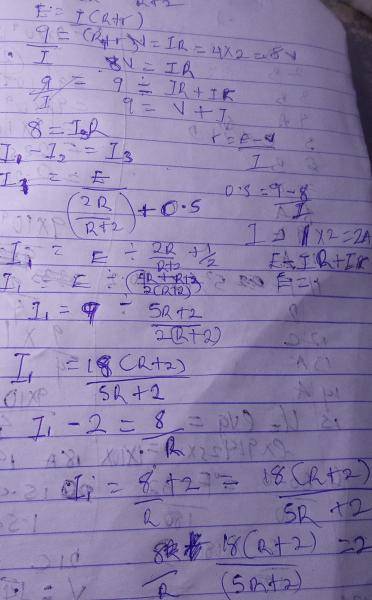 E = I(R+r)
9/I = (R+r) V = IR = 4x2 = 8V
8V = IR
9/I = 9 = IR + Ir
9 = V + Ir
8 = I₂R
r = E-V/I
I₁ - I₂ = I₃
I₁ = E/(2R/R+2) + 0.5
0.5 = 9-8/I
I = 1x2 = 2A
I₁ = E ÷ 2R/R+2 + 1/2
E = IR + Ir
I₁ = E ÷ (4R+R+2/2(R+2))
E =
I₁ = 9 ÷ 5R+2/2(R+2)
I₁ = 18(R+2)/5R+2
I₁ - 2 = 8/R
I₁ = 8/R + 2 = 18(R+2)/5R+2
8/R 18(R+2)/(5R+2) = 2